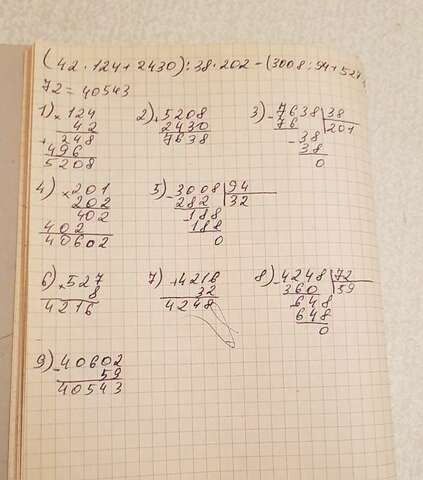 (42 · 124 + 2430) : 38 · 202 - (3008 : 94 + 527
72 = 40543
1) × 124
42
+ 248
496
5208
2) + 5208
2430
7638
3) - 7638 | 38
76 | 201
- 38
38
0
4) × 201
202
402
402
40602
5) - 3008 | 94
282 | 32
- 188
188
0
6) × 527
8
4216
7) + 4216
32
4248
8) - 4248 | 72
360 | 59
- 648
648
0
9) - 40602
59
40543